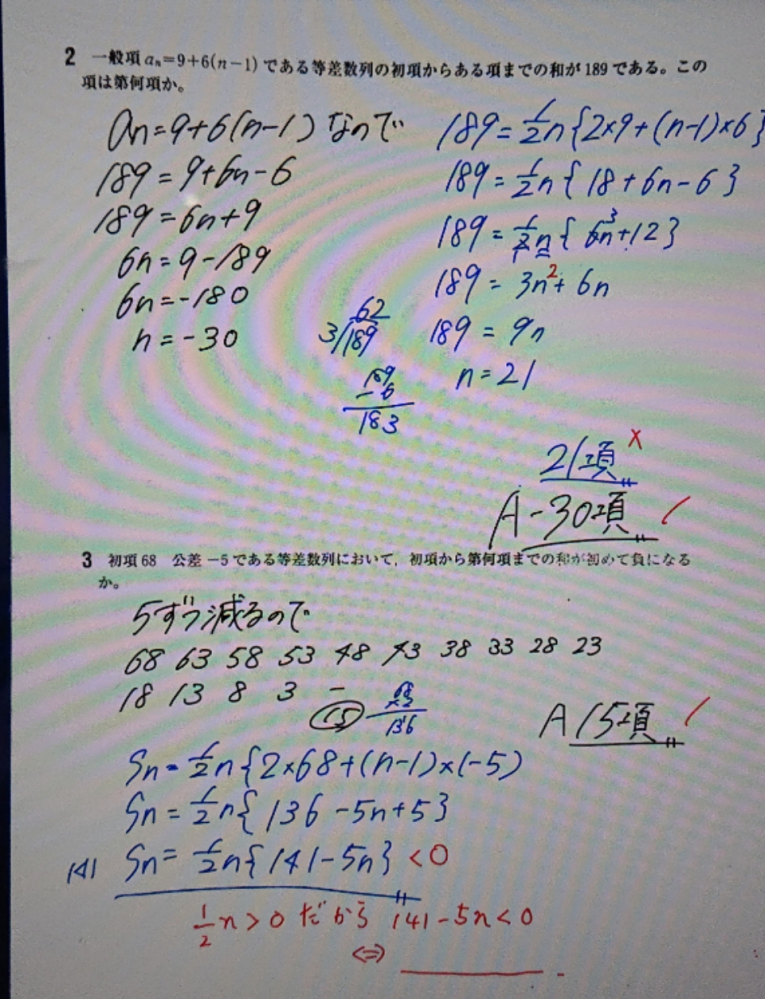 2 一般項 aₙ=9+6(n-1) である等差数列の初項からある項までの和が189である。この
項は第何項か。
an=9+6(n-1) なので
189=9+6n-6
189=6n+9
6n=9-189
6n=-180
n=-30
189=1/2n{2×9+(n-1)×6}
189=1/2n{18+6n-6}
189=1/2n{6n+12}
3
189=3n²+6n
189=9n
n=21
62
3/189
189
-6
183
21項 ×
A -30項
3 初項68 公差-5である等差数列において,初項から第何項までの和が初めて負になる
か。
5ずつ減るので
68 63 58 53 48 43 38 33 28 23
18 13 8 3 -
15
68
×2
136
A 15項
Sn=1/2n{2×68+(n-1)×(-5)
Sn=1/2n{136-5n+5}
141 Sn=1/2n{141-5n}<0
1/2n>0 だから 141-5n<0
⇔